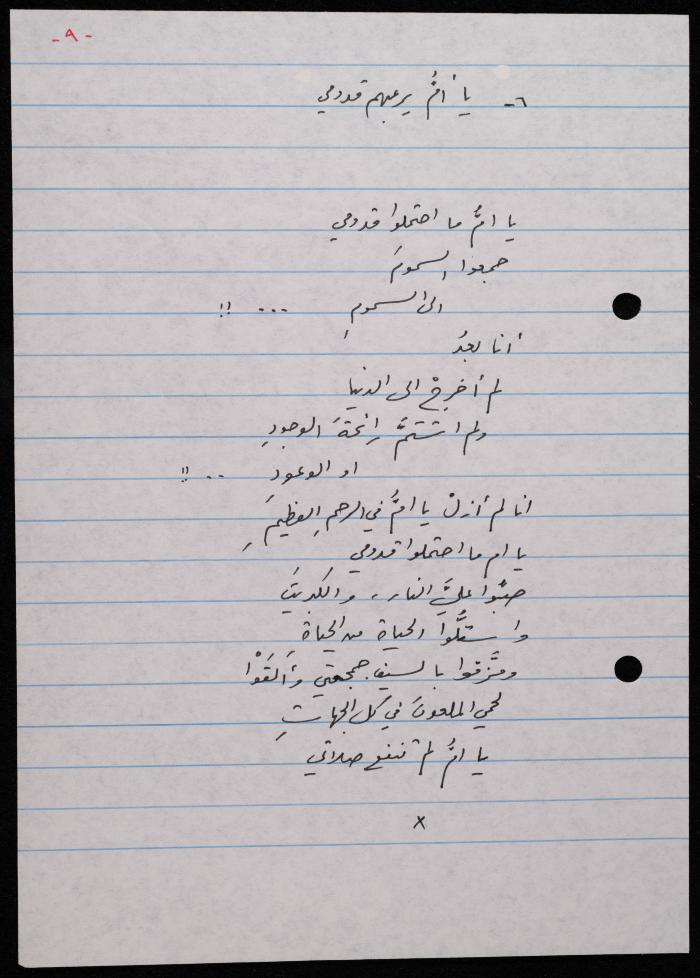 -٩-
٦- يا أمُّ يرعبهم قدومي
يا امُّ ما احتملوا قدومي
جمعوا السمومَ
الى السمومِ ... !!
أنا بعدُ
لم أخرجْ الى الدنيا
ولم اشتمَّ رائحةَ الوجودِ
او الوعود .. !!
انا لم أزلْ يا امُّ في الرحمِ العظيمِ
يا ام ما احتملوا قدومي
صبّوا عليَّ النار، والكبريتَ
واستلُّوا الحياة من الحياة
ومزَّقوا بالسيف جمجمتي وَأَلقَوْا
لحمي الملعونَ في كل الجهاتِ
يا امُّ لمْ تنفع صلاتي
x